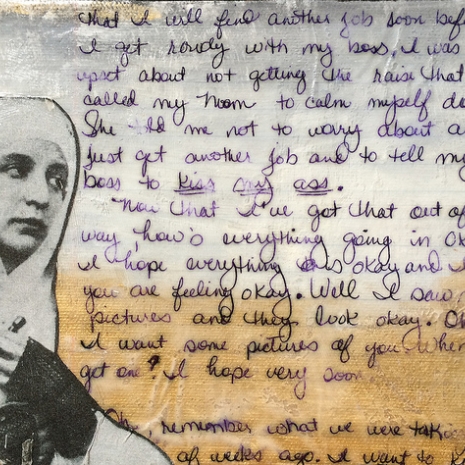 that I will find another job soon bef
I get rowdy with my boss. I was
upset about not getting the raise that
called my mom to calm myself do
She told me not to worry about a
just get another job and to tell my
boss to kiss my ass.
Now that I've got that out of
way, how's everything going in Ok
I hope everything is okay and I
you are feeling okay. Well I saw
pictures and they look okay. O
I want some pictures of you. When
got one? I hope very soon
remember what we were talkin
of weeks ago. I want to k